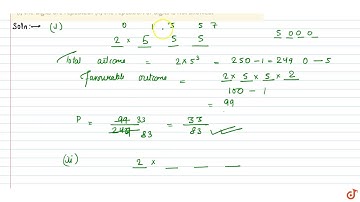 Soln:→ (i) 0 1, 3 5 7
2 × 5 5 5 5 0 0 0
Total outcome = 2×5³ = 250 − 1 = 249 0 — 5
favourable outcome = 2 × 5 × 5 × 2
100 − 1
= 99
P = 99 33 / 249 83 = 33 / 83
(ii) 2 ×